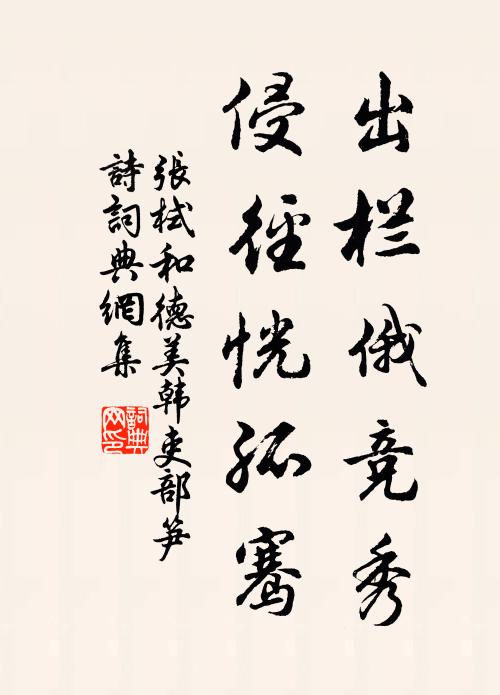 出栏俄竞秀
侵径恍孤骞
張栻和德美韩吏部笋
詩詞典網集
詞典网印